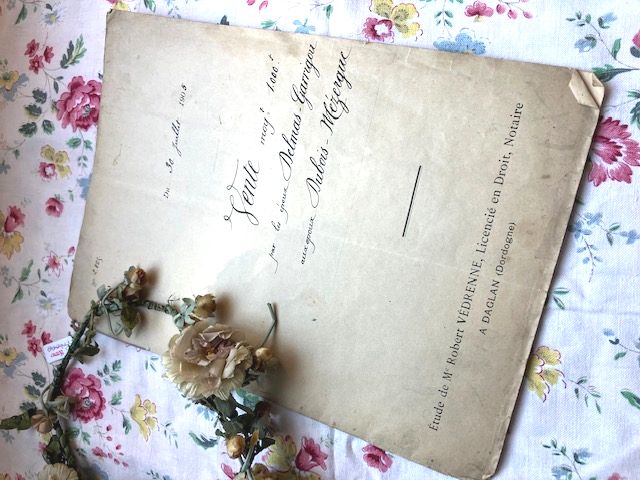 Du 30 juillet 1905
Vente moyt 1.000f
par les époux Delmas-Garrigou
aux époux Dubois-Mézergue
Étude de Me Robert VÉDRENNE, Licencié en Droit, Notaire
A DAGLAN (Dordogne)